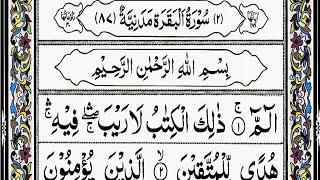 (٢) سُوْرَةُ الْبَقَرَةِ مَدَنِيَّةٌ (٨٧)
بِسْمِ اللّٰهِ الرَّحْمٰنِ الرَّحِيْمِ
الٓمّٓ ۚ ﴿١﴾ ذٰلِكَ الْكِتٰبُ لَا رَيْبَ ۛۖ فِيْهِ ۛۚ
هُدًى لِّلْمُتَّقِيْنَ ﴿٢﴾ الَّذِيْنَ يُؤْمِنُوْنَ